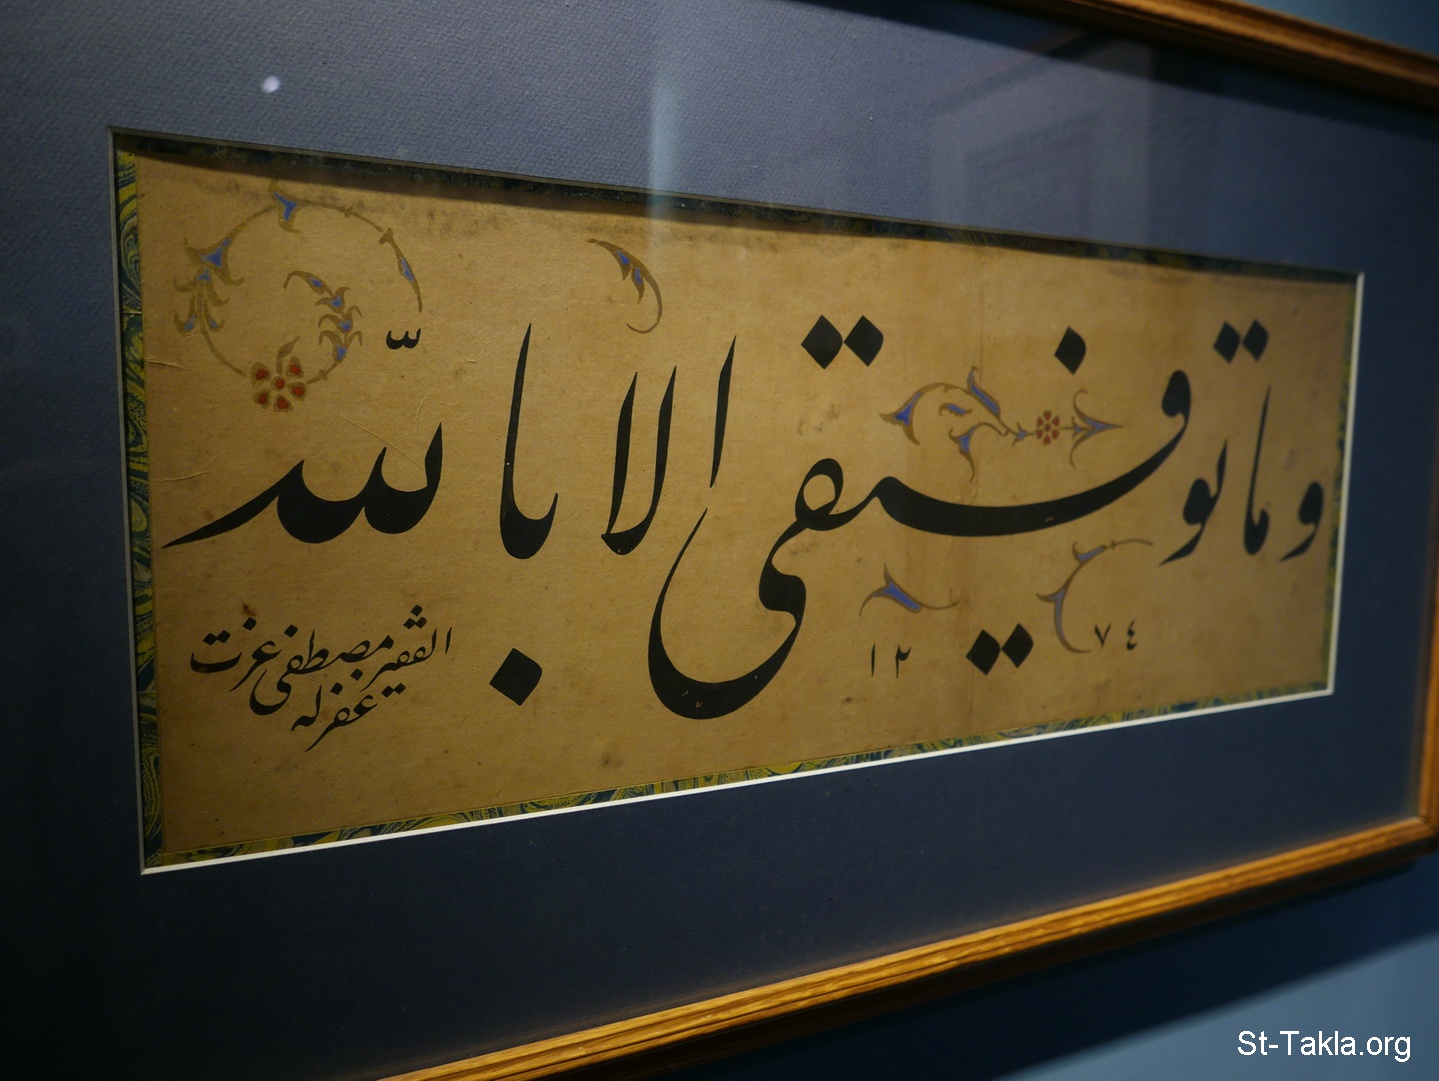 وما توفيقى الا بالله
١٢٧٤
الفقير مصطفى عزت
غفرله
St-Takla.org